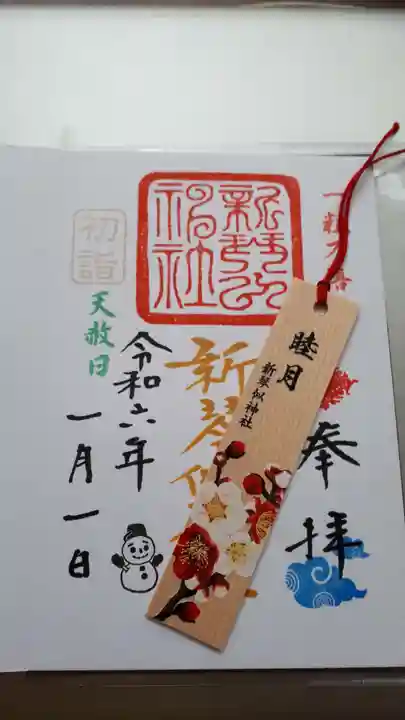 奉拝
新琴似
神社
新琴似
睦月
新琴似神社
令和六年
一月一日
初詣
天赦日